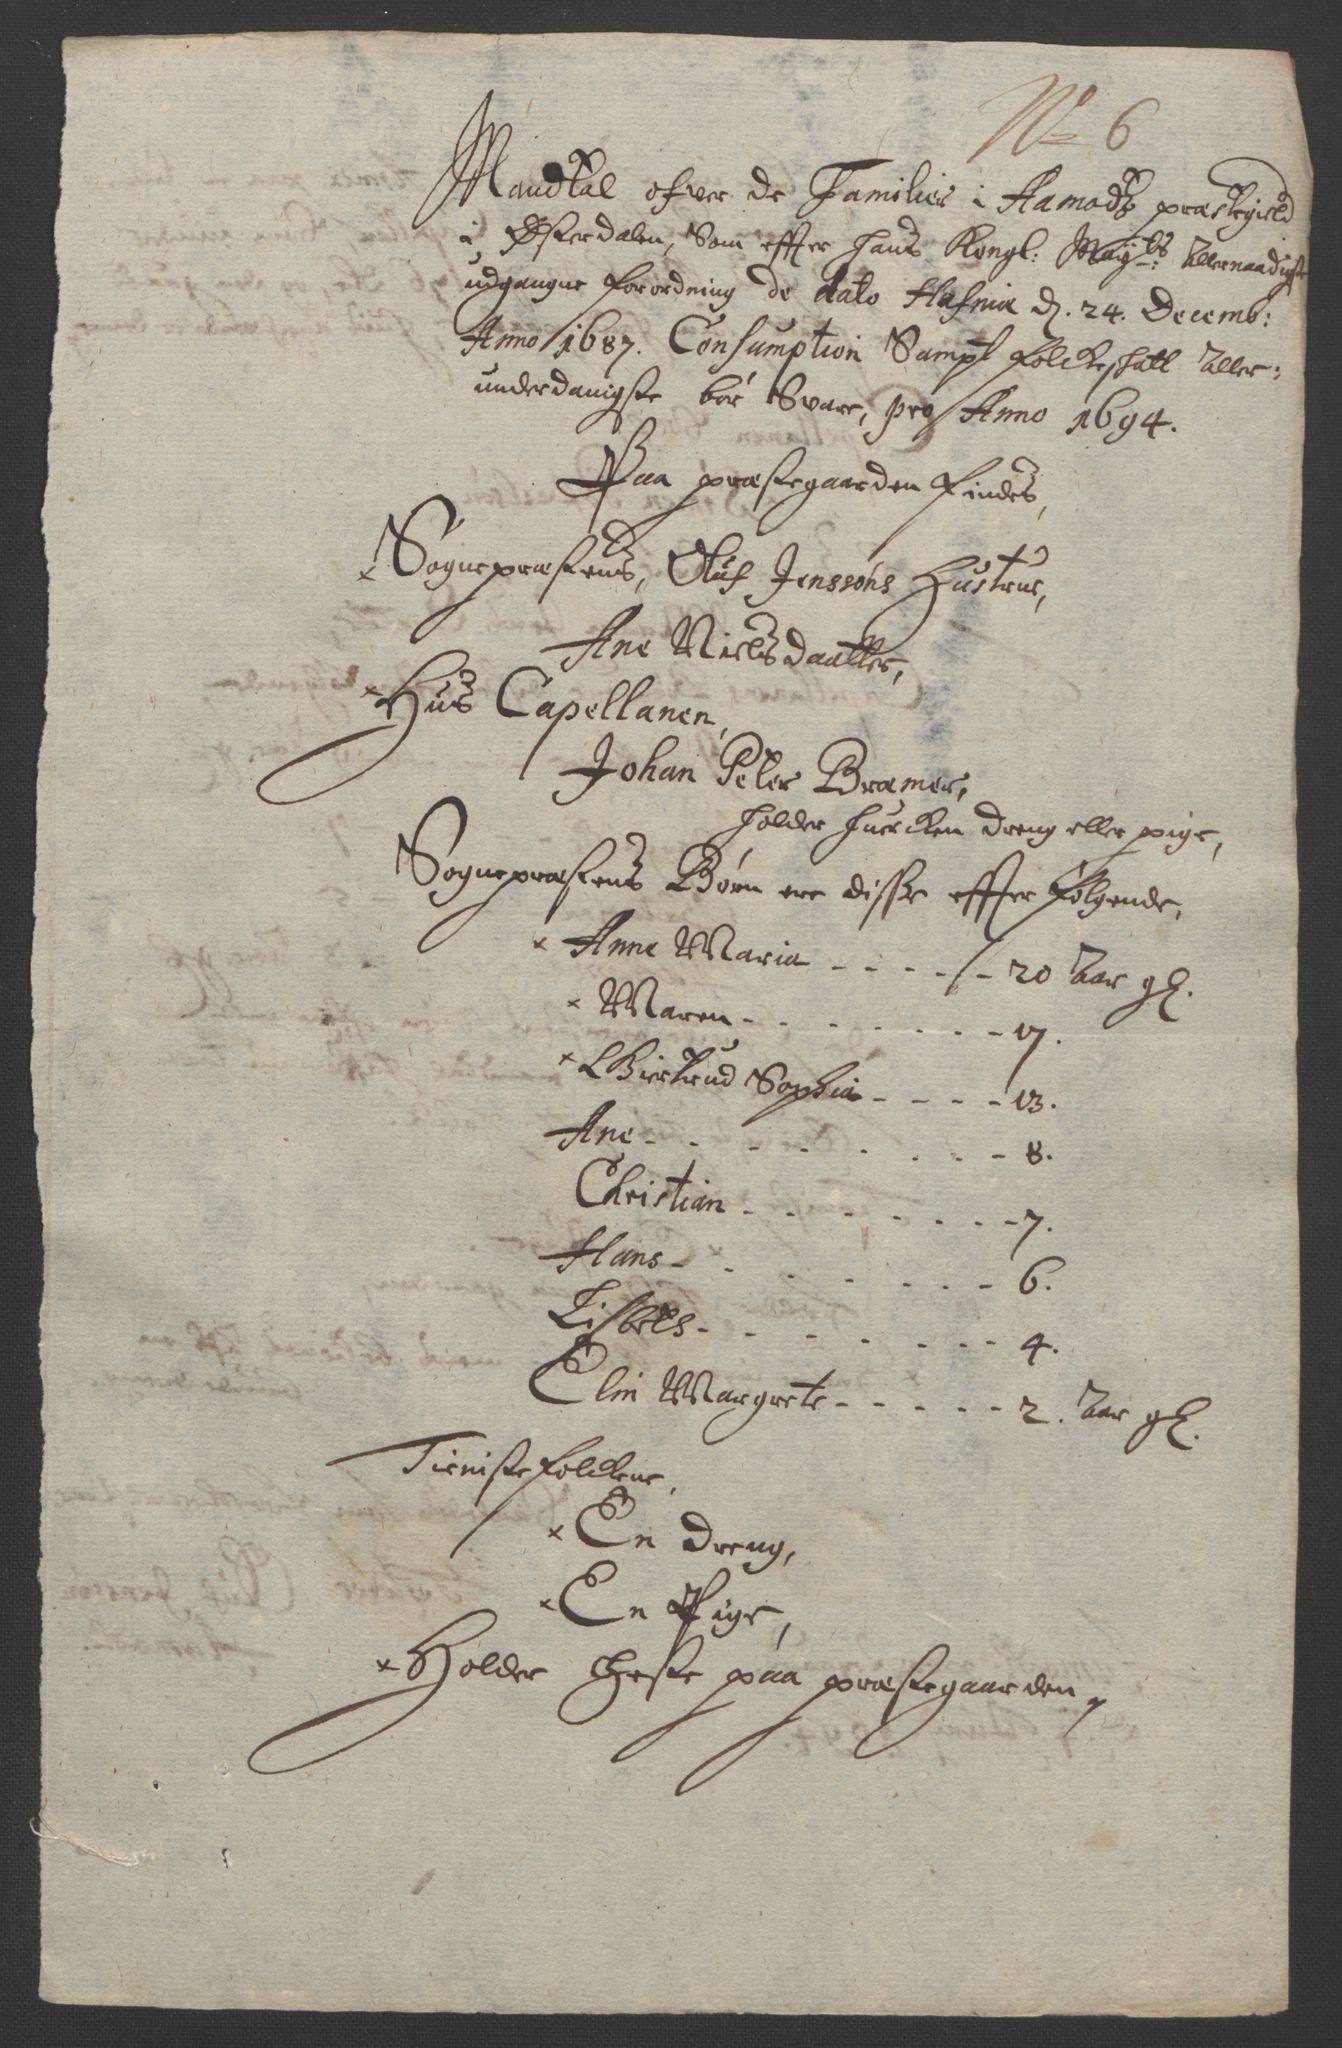 No 6
Mandtal ofver de Familier i Aamodtz præstegield
i Østerdalen, Som effter hans Kongl: Mayts: allernaadigste
udgangne forordning de dato Hafnia d. 24. Decemb:
Anno 1687. Consumption Sampt folckeskatt aller:
underdanigste bør Svare, pro Anno 1694.
Paa præstegaarden findes,
× Sognepræstens, Oluf Jenssøns Hustrue,
Ane Nielsdaatter,
× Hus Capellanen,
Johan Peter Bræmer,
holder huercken dreng eller pige,
Sognepræstens Børn ere disse effter følgende,
× Anne Maria - - - - - 20 aar gl.
× Maren - - - - - - - 17.
× Giertrud Sophia - - - - 13.
Ane - - - - - - - - 8.
Christian - - - - - - - 7.
Hans - - - - - - - 6.
Lisbets - - - - - - - 4.
Elin Margrete - - - - - 2. aar gl.
Tieniste folckene,
× En dreng,
× En Pige,
× Holder heste paa præstegaarden,